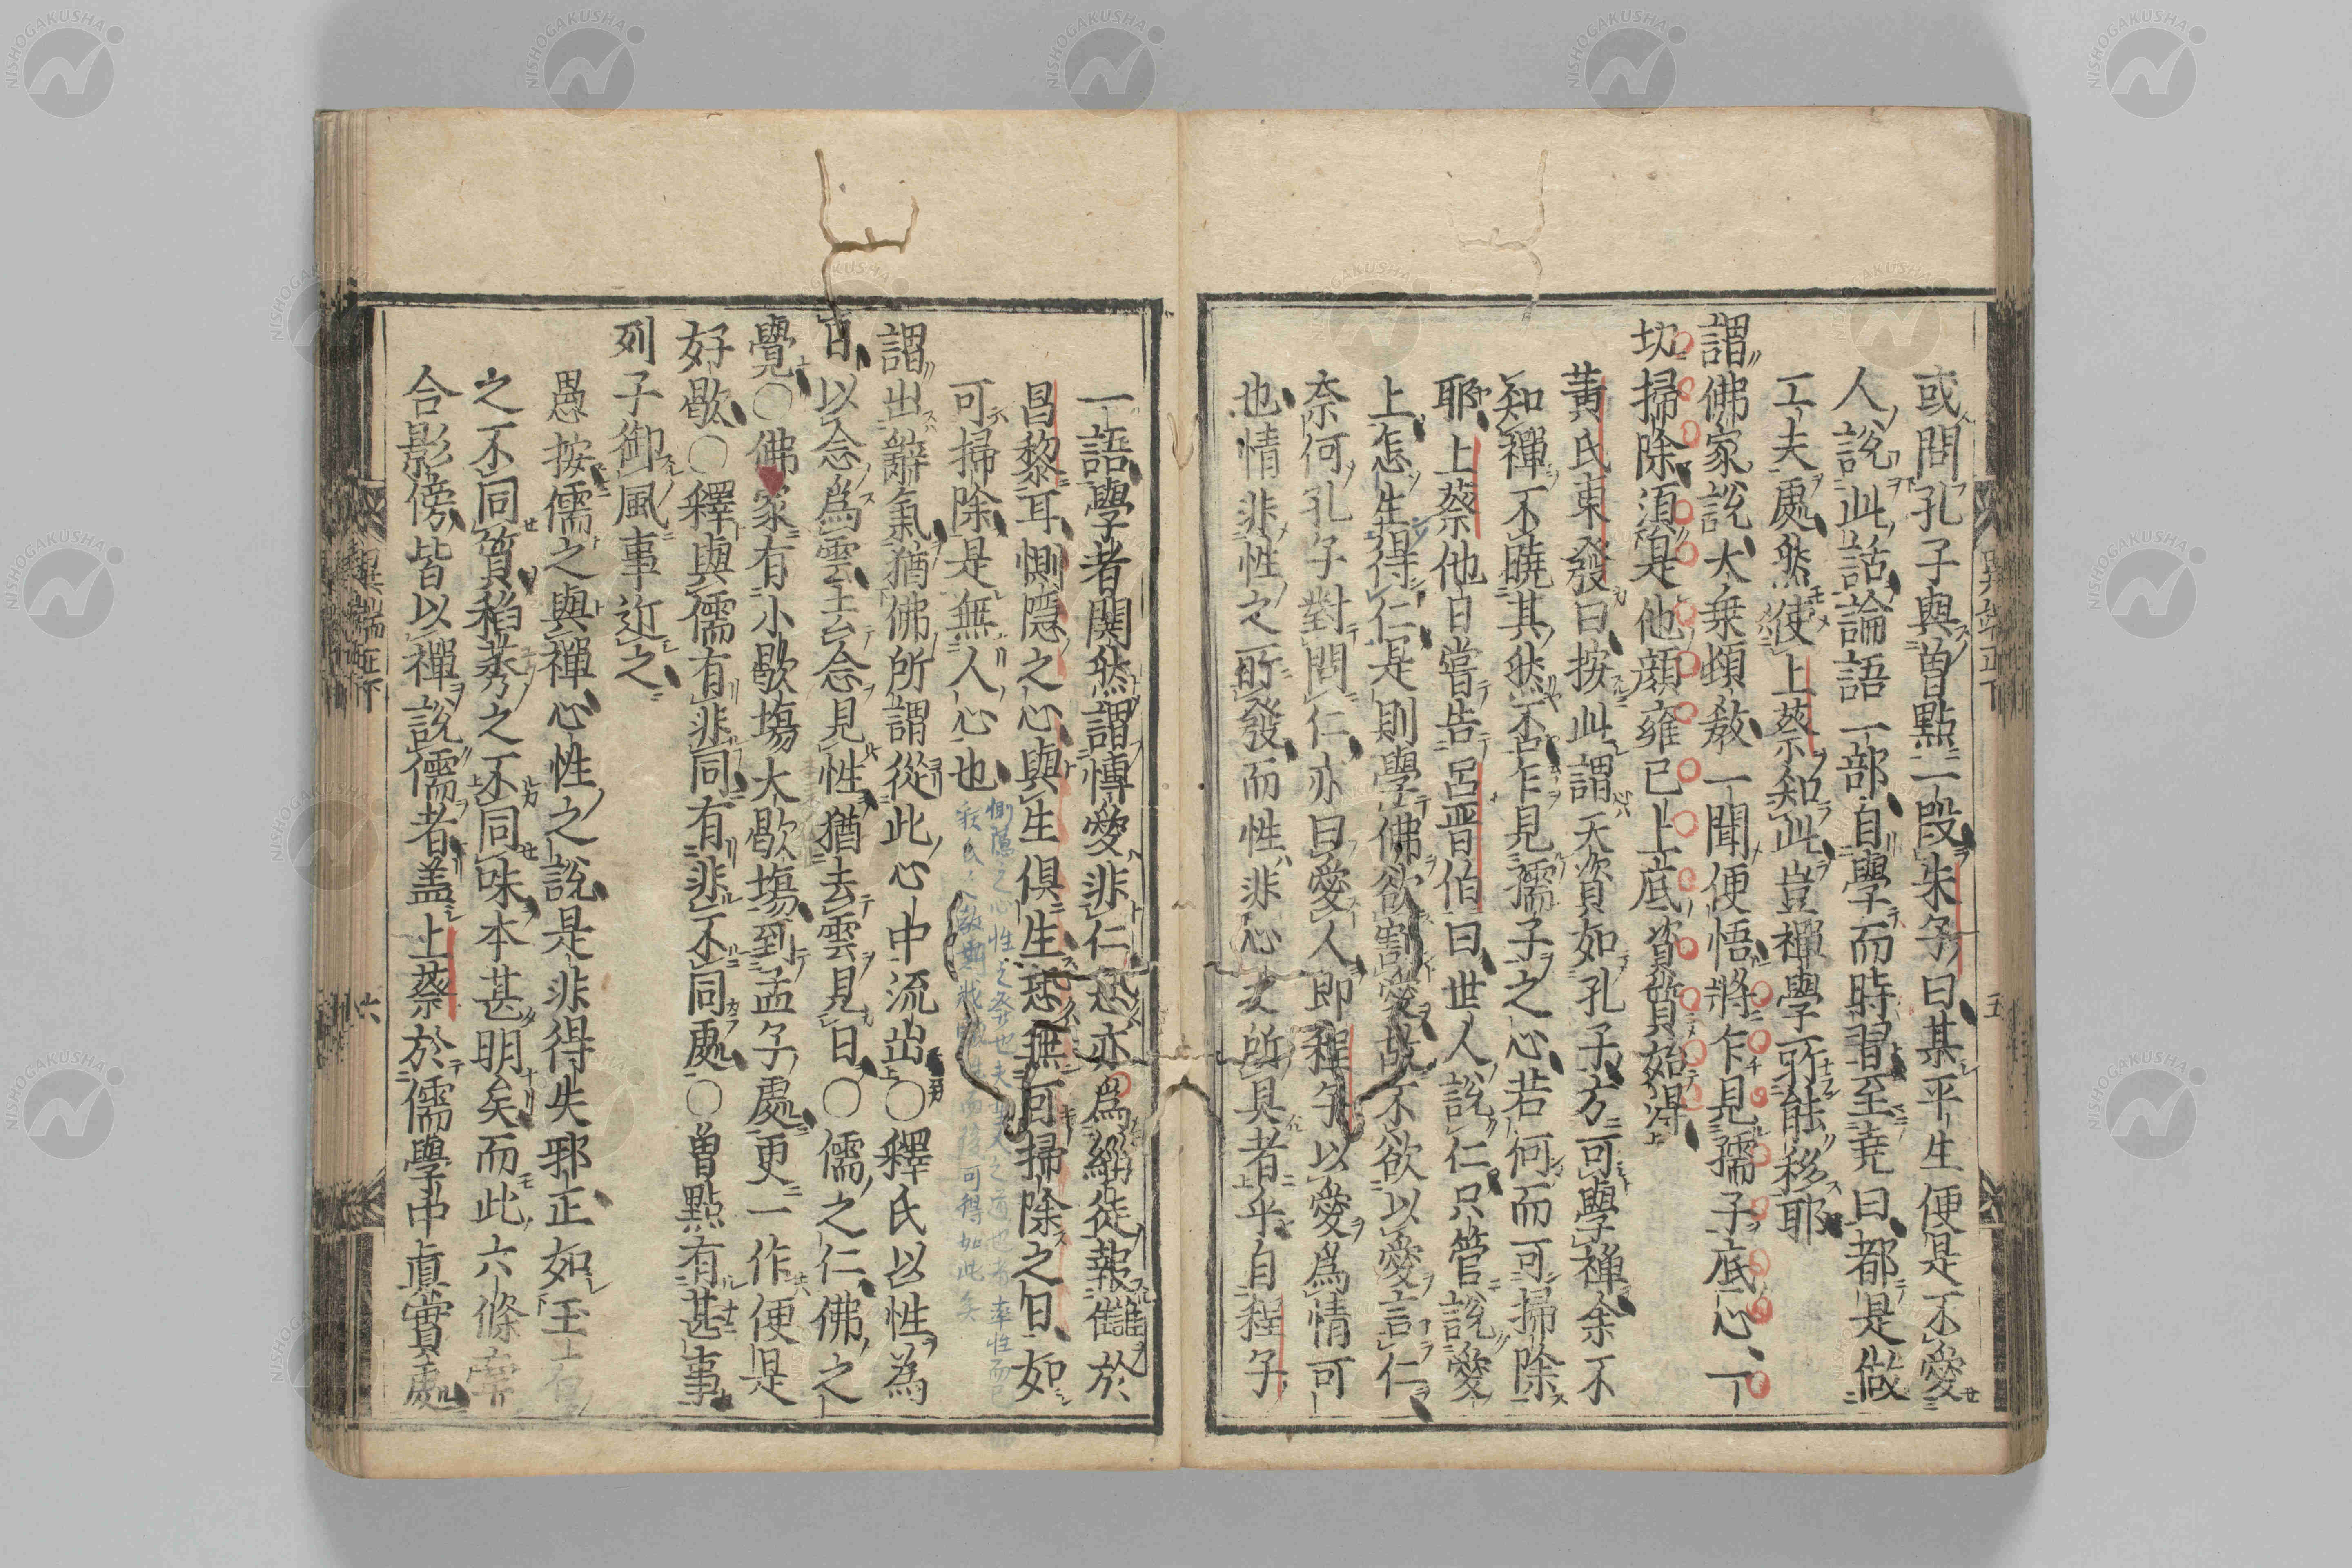 或問孔子與曽點一段朱子曰某平生便是不愛
人說此話論語一部自學而時習至堯曰都是做
工夫處然使上蔡知此豈禪學所能移耶
謂佛家說大乗頓教一聞便悟將乍見孺子底心一
切掃除須是他顔雍已上底資質始得
黄氏東發曰按此謂天資如孔子方可學禅余不
知禪不曉其然否乍見孺子之心若何而可掃除
耶上蔡他日嘗告呂晋伯曰世人說仁只管說愛
上怎生得仁是則學佛欲割愛故不欲以愛言仁
奈何孔子對問仁亦曰愛人即程子以愛爲情可
也情非性之所發而性非心之所具者乎自程子
異端正下
五
一語學者関然謂愽愛非仁恐亦爲緇徒報讎於
昌黎耳惻隱之心與生俱生恐無可掃除之日如
可掃除是無人心也
謂出辭氣猶佛所謂從此心中流出○釋氏以性為
日以念爲雲去念見性猶去雲見日○儒之仁佛之
覺○佛家有小歇塲大歇塲到孟子處更一作便是
好歇○釋與儒有非同有非不同處○曽點有甚事
列子御風事近之
愚按儒之與禪心性之說是非得失邪正如玉石
之不同質稻莠之不同味本甚明矣而此六條
合影傍皆以禪說儒者盖上蔡於儒學中眞實處
異端正下
六